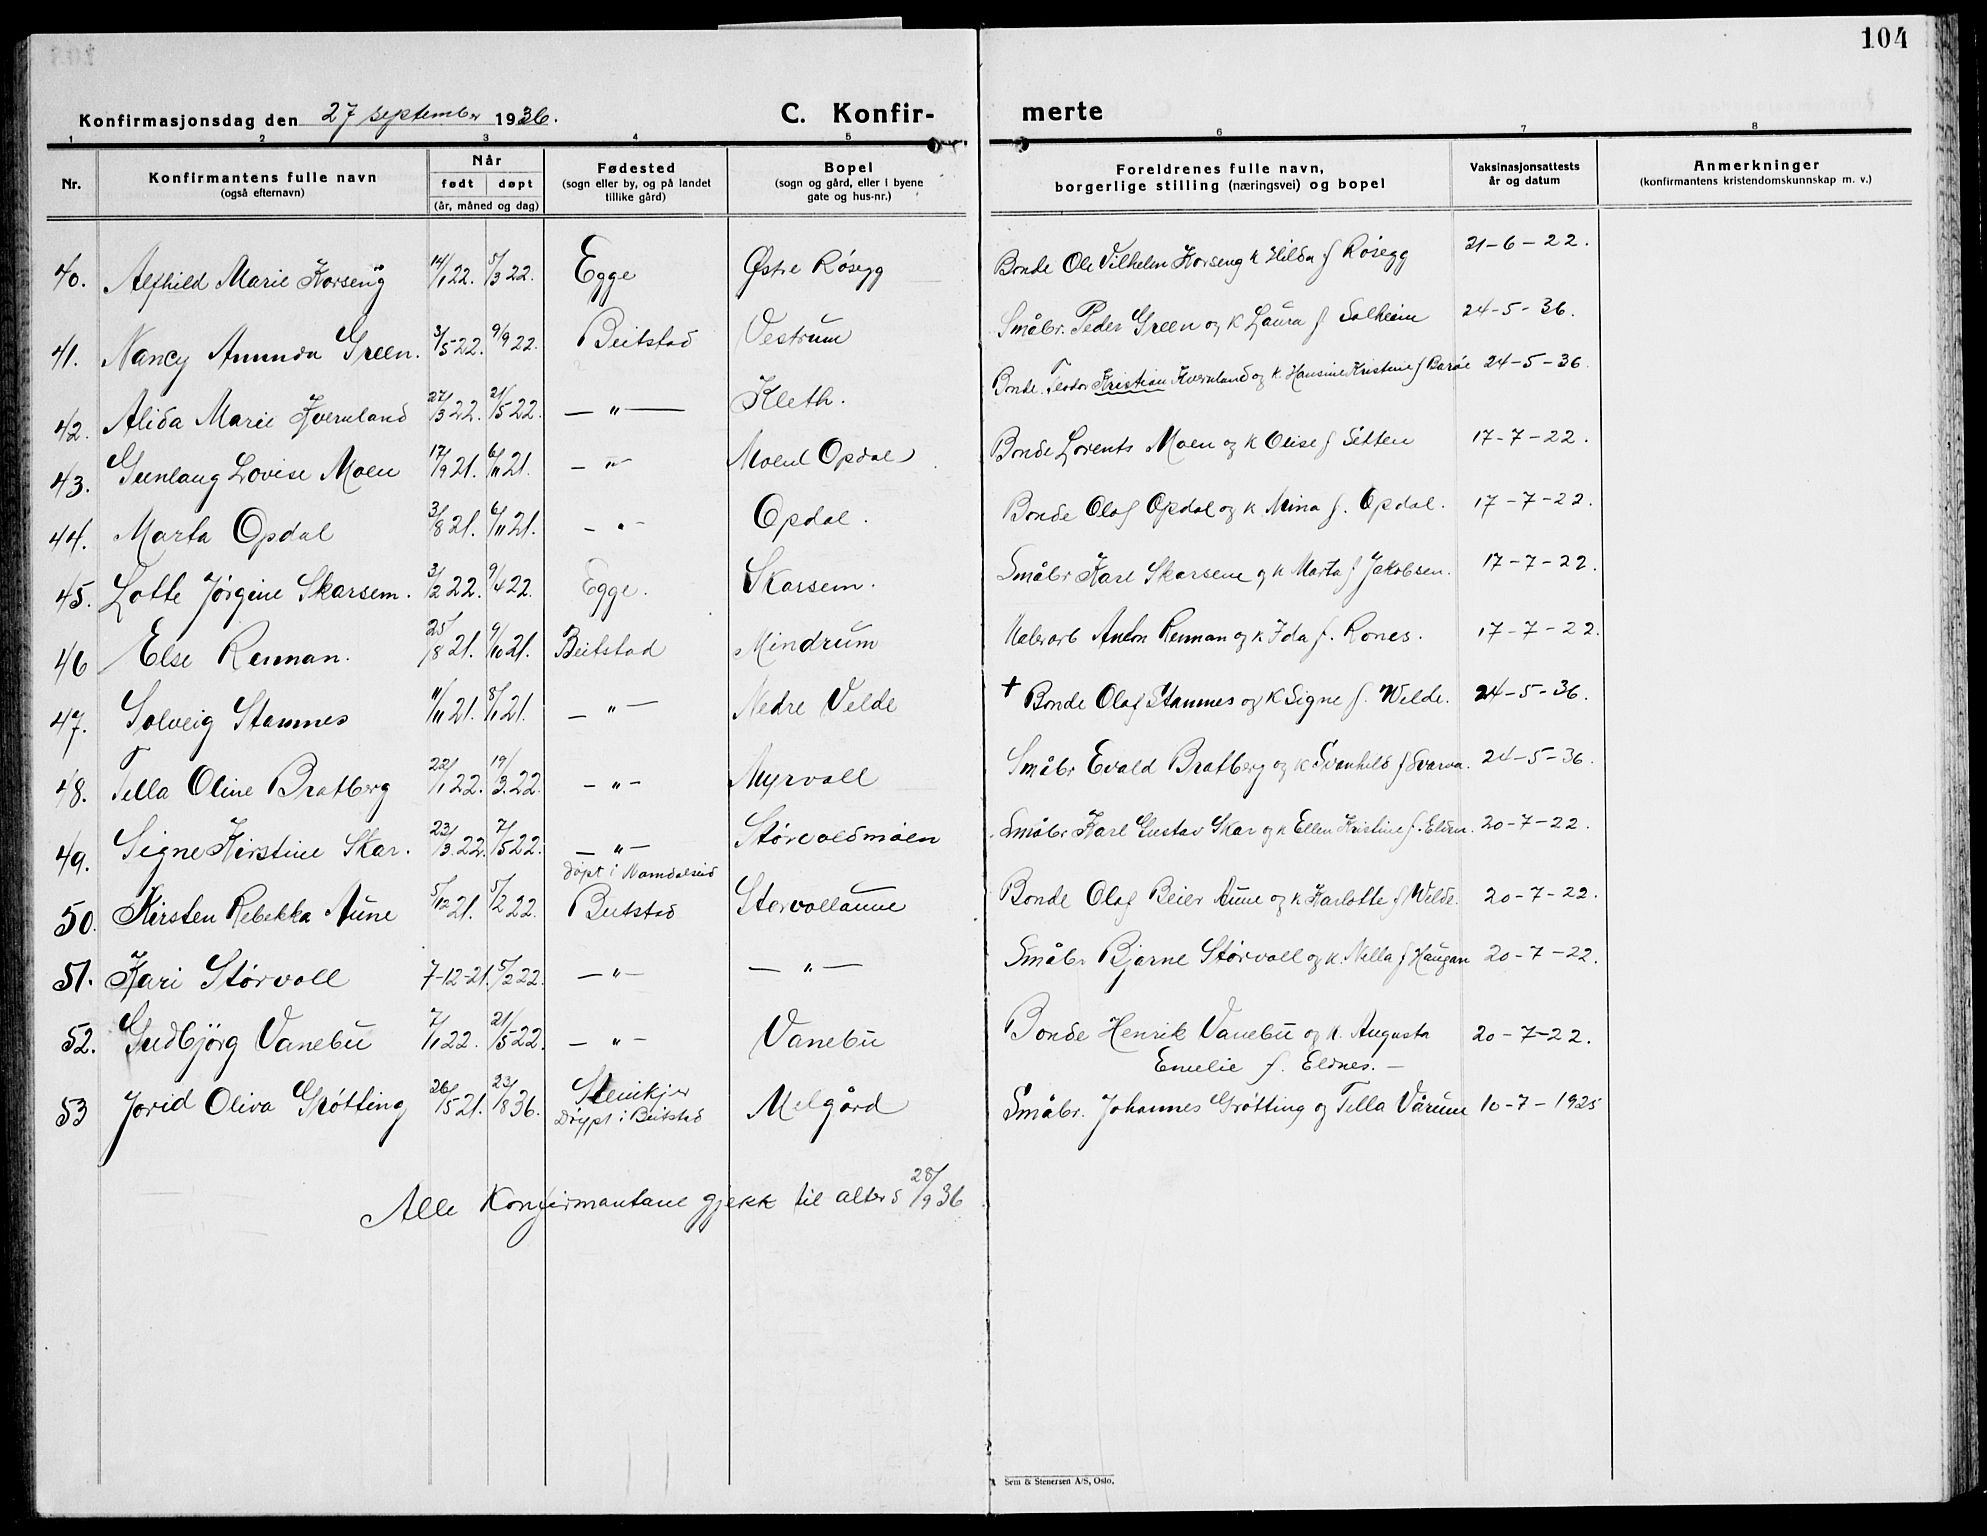 104
Konfirmasjonsdag den 27 september 1936. C. Konfir- merte
1 2 3 4 5 6 7 8
Nr. Konfirmantens fulle navn (også efternavn) Når født døpt (år, måned og dag) Fødested (sogn eller by, og på landet tillike gård) Bopel (sogn og gård, eller i byene gate og hus-nr.) Foreldrenes fulle navn, borgerlige stilling (næringsvei) og bopel Vaksinasjonsattests år og datum Anmerkninger (konfirmantens kristendomskunnskap m. v.)
40. Alfhild Marie Korseng 14/1 22. 5/3 22. Egge Østre Røsegg Bonde Ole Vilhelm Korseng k Hilda f Røsegg 21-6-22.
41. Nancy Amunda Green. 3/5 22. 9/9 22. Beitstad Vestrum Småbr. Peder Green og k Laura f Solheim 24-5-36.
42. Alida Marie Kvernland 27/3 22. 21/5 22. — " — Kleth. Bonde Teodor Kristian Kvernland og k. Hansine Kristine f Barøe 24-5-36.
43. Gunlaug Lovise Moen 17/9 21. 6/11 21. — " — Moen Opdal Bonde Lorents Moen og k Olise f Setten 17-7-22.
44. Marta Opdal 3/8 21. 6/11 21. — " — Opdal. Bonde Olaf Opdal og k Mina f. Opdal. 17-7-22.
45. Lotte Jørgine Skarsem. 3/2 22. 9/4 22. Egge. Skarsem. Småbr Karl Skarsem og k Marta f Jakobsen. 17-7-22.
46 Else Renman. 25/8 21. 9/10 21. Beitstad Mindrum Anton Renman og k Ida f. Rones. 17-7-22.
47. Solveig Stamnes 11/11 21. 8/1 21. — " — Nedre Velde + Bonde Olaf Stamnes og k Signe f. Welde. 24-5-36.
48. Tella Oline Bratberg 22/1 22. 19/3 22. — " — Myrvoll Småbr Evald Bratberg og k Svanhild f Svarva. 24-5-36.
49. Signe Kirstine Skar. 23/3 22. 7/5 22. — " — Størvoldmoen Småbr Karl Gustav Skar og k Ellen Kristine f. Elden. 20-7-22.
døpt i Namdalseid
50. Kirsten Rebekka Aune 5/12 21. 5/2 22. Beitstad Størvollaune Bonde Olaf Beier Aune og k Karlotte f Welde. 20-7-22.
51. Kari Størvoll 7-12-21. 5/2 22. — " — — " — Småbr Bjarne Størvoll og k. Nella f Haugan 20-7-22.
52. Gudbjörg Vanebu 7/1 22. 21/5 22. — " — Vanebu Bonde Henrik Vanebu og k. Augusta 20-7-22.
Emelie f. Eldnes. —
53 Jorid Oliva Grøtting 26/5 21. 23/8 36. Steinkjer Melgård Småbr. Johannes Grøtting og Tella Vårum 10-7-1925
Døypt i Beitstad
Alle Konfirmantane gjekk til alters 28/9 36
Sem & Stenersen A/S, Oslo.